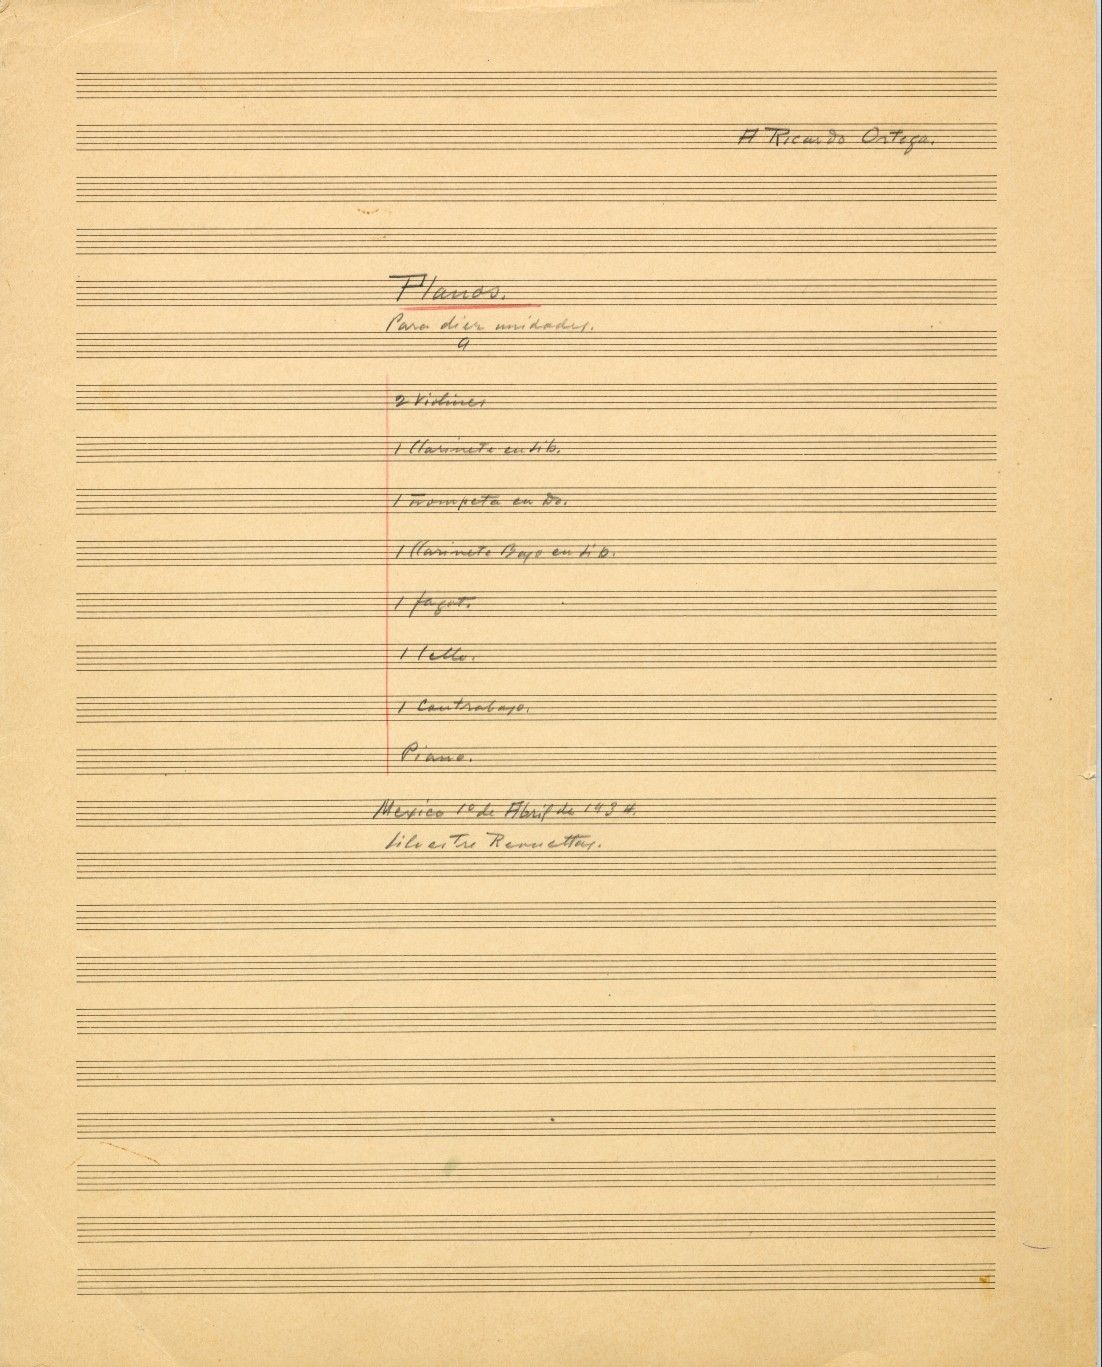 A Ricardo Ortega.
Planos.
Para diez unidades.
9
2 Violines
1 Clarinete en Sib.
1 Trompeta en Do.
1 Clarinete Bajo en Sib.
1 fagot.
1 Cello.
1 Contrabajo.
Piano.
Mexico 1º de Abril de 1934.
Silvestre Revueltas.